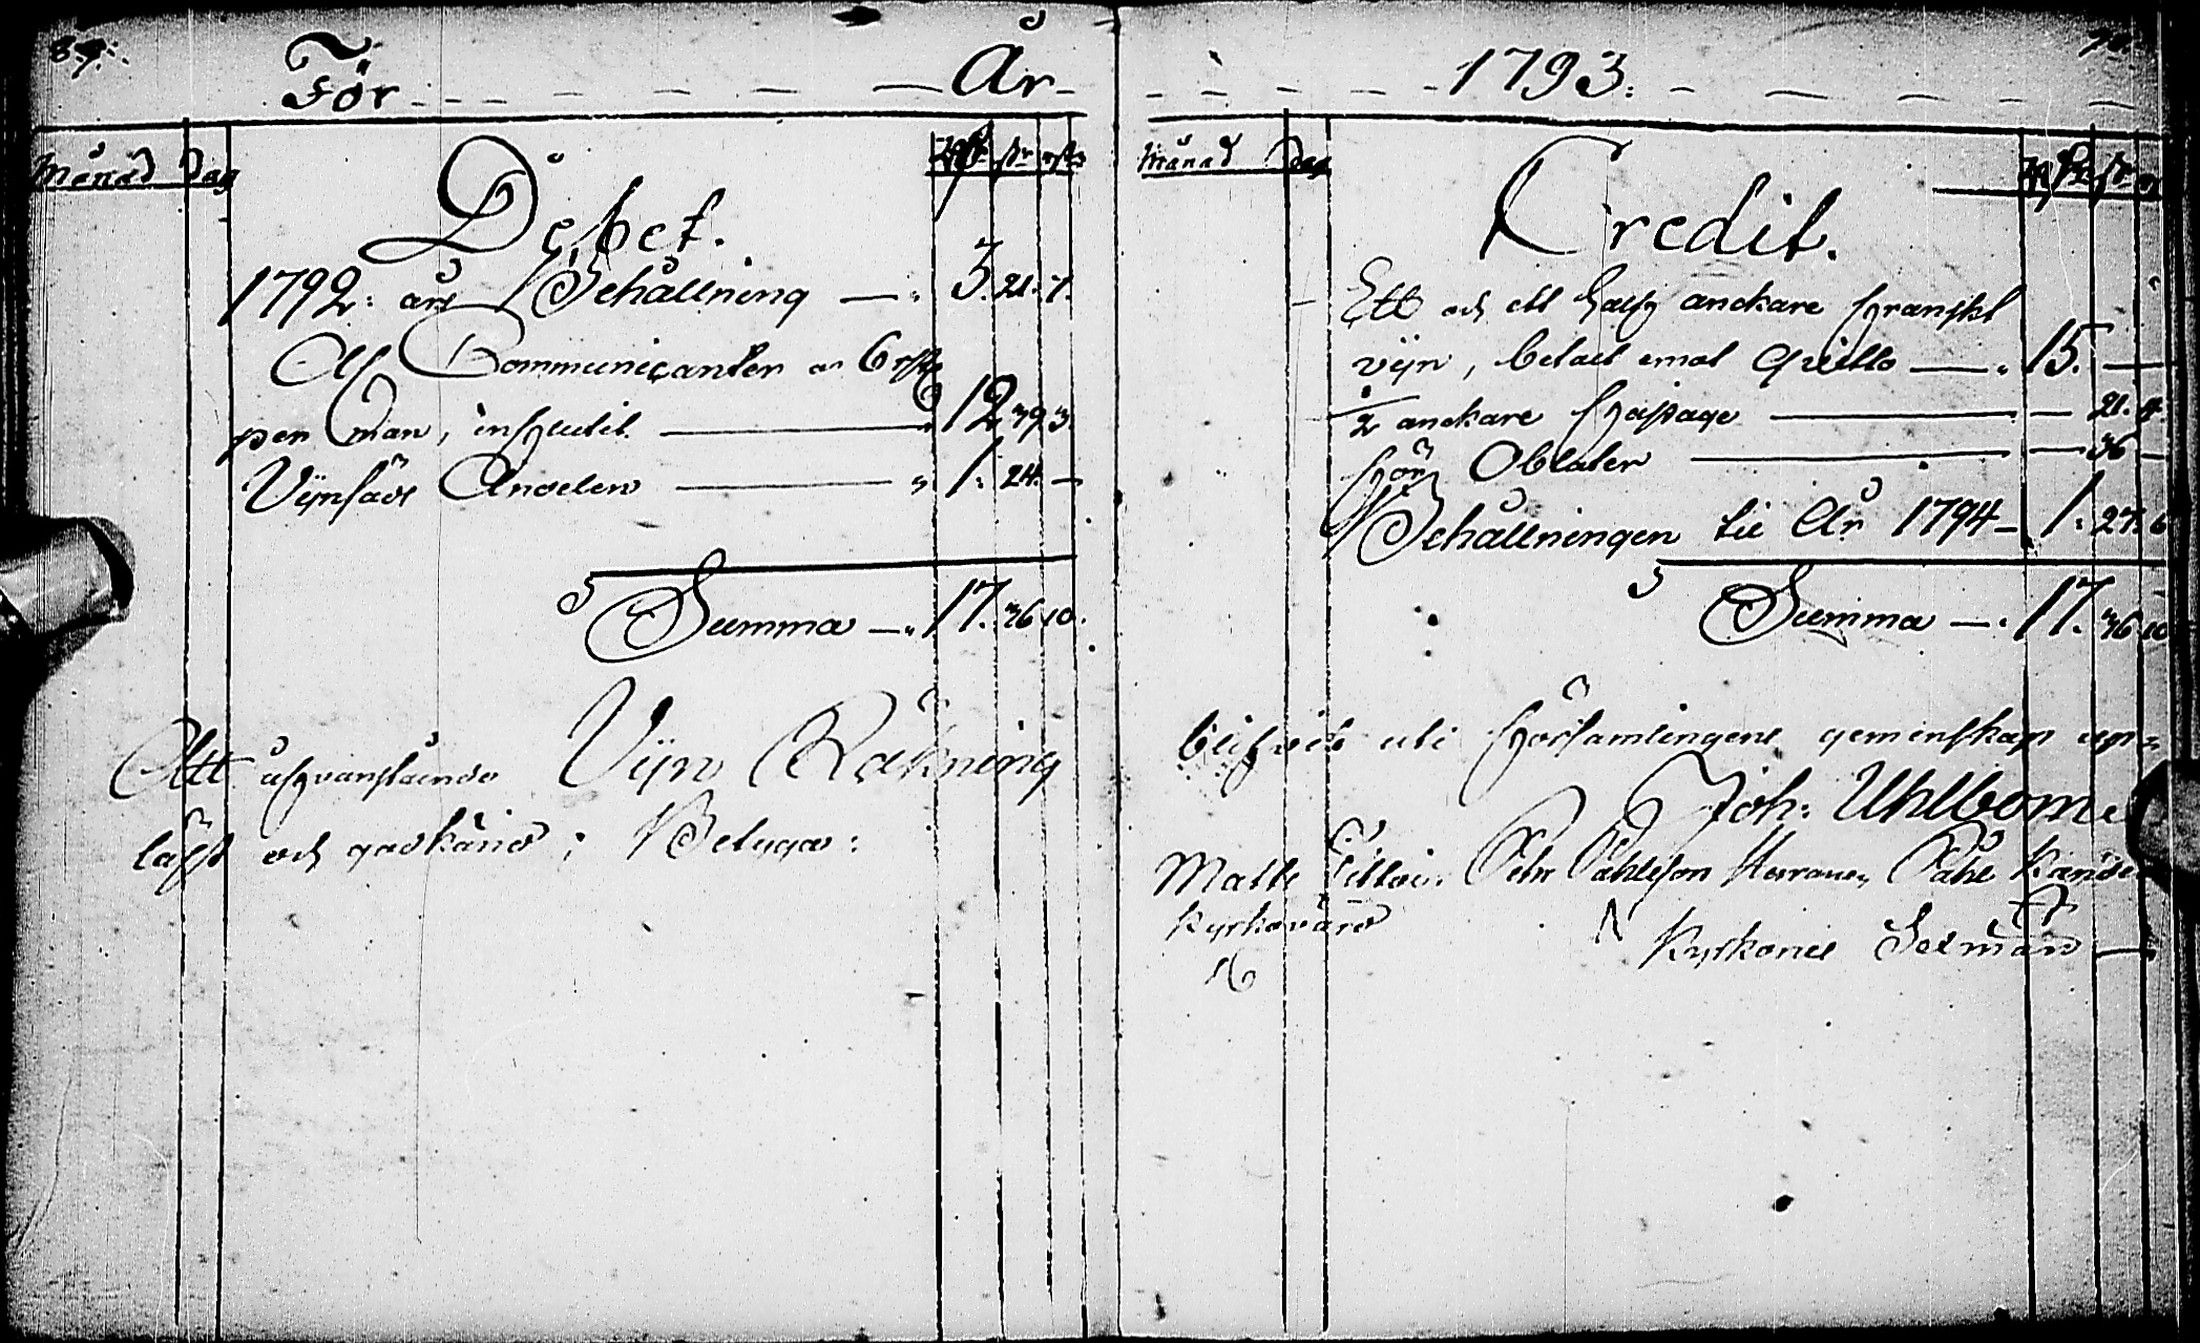 För År
Månad Dag
Debet.
1792: års Behållning — 3. 21. 7.
Af Communicanter a 6 rst
per Man, influtit. — 12 39 3.
Vijnsäds Andelen — 1. 24. —
Summa — 17. 36 10.
Att ofvanstående Vijn Räkning
läst och godkänd; Betygar:
1793.
Månad Dag
Credit.
Ett och ett halft anckare franskt
vijn, betalt emot Qvitto — 15. —
1/2 anckare — 21. 4.
för Oblater — 36 —
Behållningen til År 1794 — 1: 27. 6
Summa — 17. 36 10
blifvit uti församlingens gemenskap up=
Joh: Uhlbom.
Matts Pehr Påhlsson Påhl
Kyrkovärd
Kyrkones Sexmän —